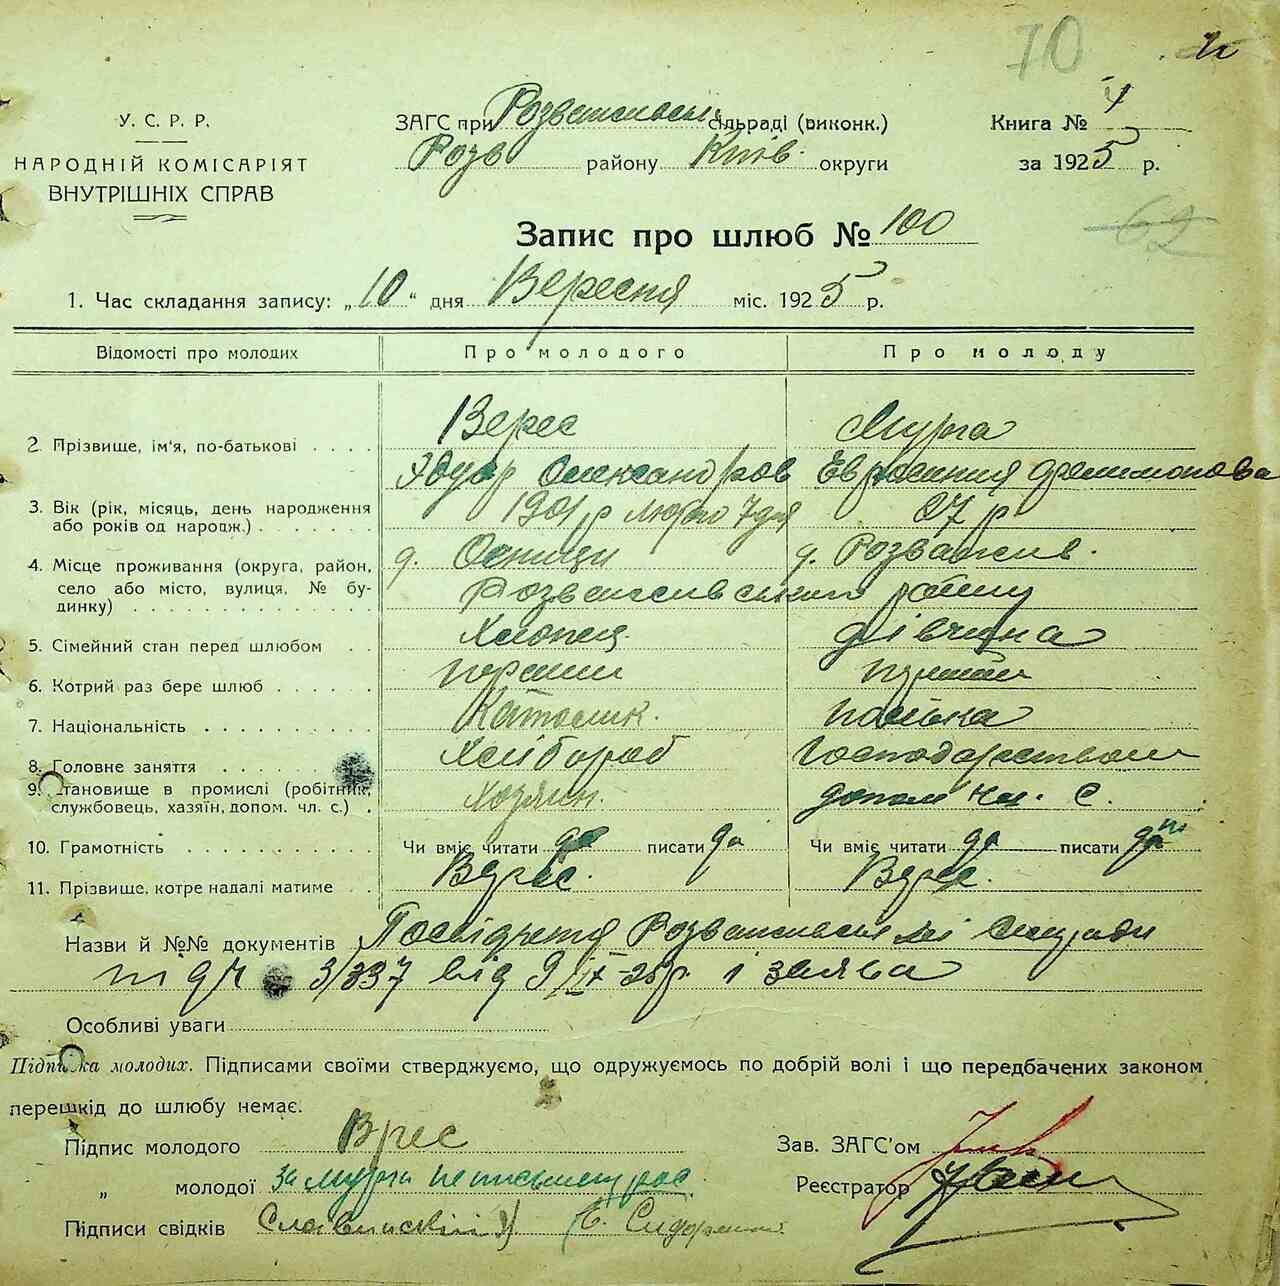 70
У. С. Р. Р.
НАРОДНІЙ КОМІСАРІЯТ
ВНУТРІШНІХ СПРАВ
ЗАГС при сільраді (виконк.)
Розв району Київ. округи
Книга № 4
за 1925 р.
62
Запис про шлюб № 100
1. Час складання запису: „10" дня Вересня міс. 1925 р.
Відомості про молодих
Про молодого
Про молоду
2. Прізвище, ім'я, по-батькові
Верес
Мурга
Олександров
3. Вік (рік, місяць, день народження
або років од народж.)
1901 р 7 дня
27 р
4. Місце проживання (округа, район,
село або місто, вулиця, № бу-
динку)
с. Розважив.
Розважівського району
5. Сімейний стан перед шлюбом
Хлопец
дівчина
6. Котрий раз бере шлюб
перший
7. Національність
Католик.
полька
8. Головне заняття
Хлібороб
Господарством
9. Становище в промислі (робітник,
службовець, хазяїн, допом. чл. с.)
Хозяин.
допом чл. с.
10. Грамотність
Чи вміє читати да писати да
Чи вміє читати да писати
11. Прізвище, котре надалі матиме
Верес.
Верес.
Назви й №№ документів Посвідчення
3/337 від 9/IX-25р. і заява
Особливі уваги
Підписка молодих. Підписами своїми стверджуємо, що одружуємось по добрій волі і що передбачених законом
перешкід до шлюбу немає.
Підпис молодого Врес
Зав. ЗАГС'ом
„ молодої за Мурга
Реєстратор
Підписи свідків